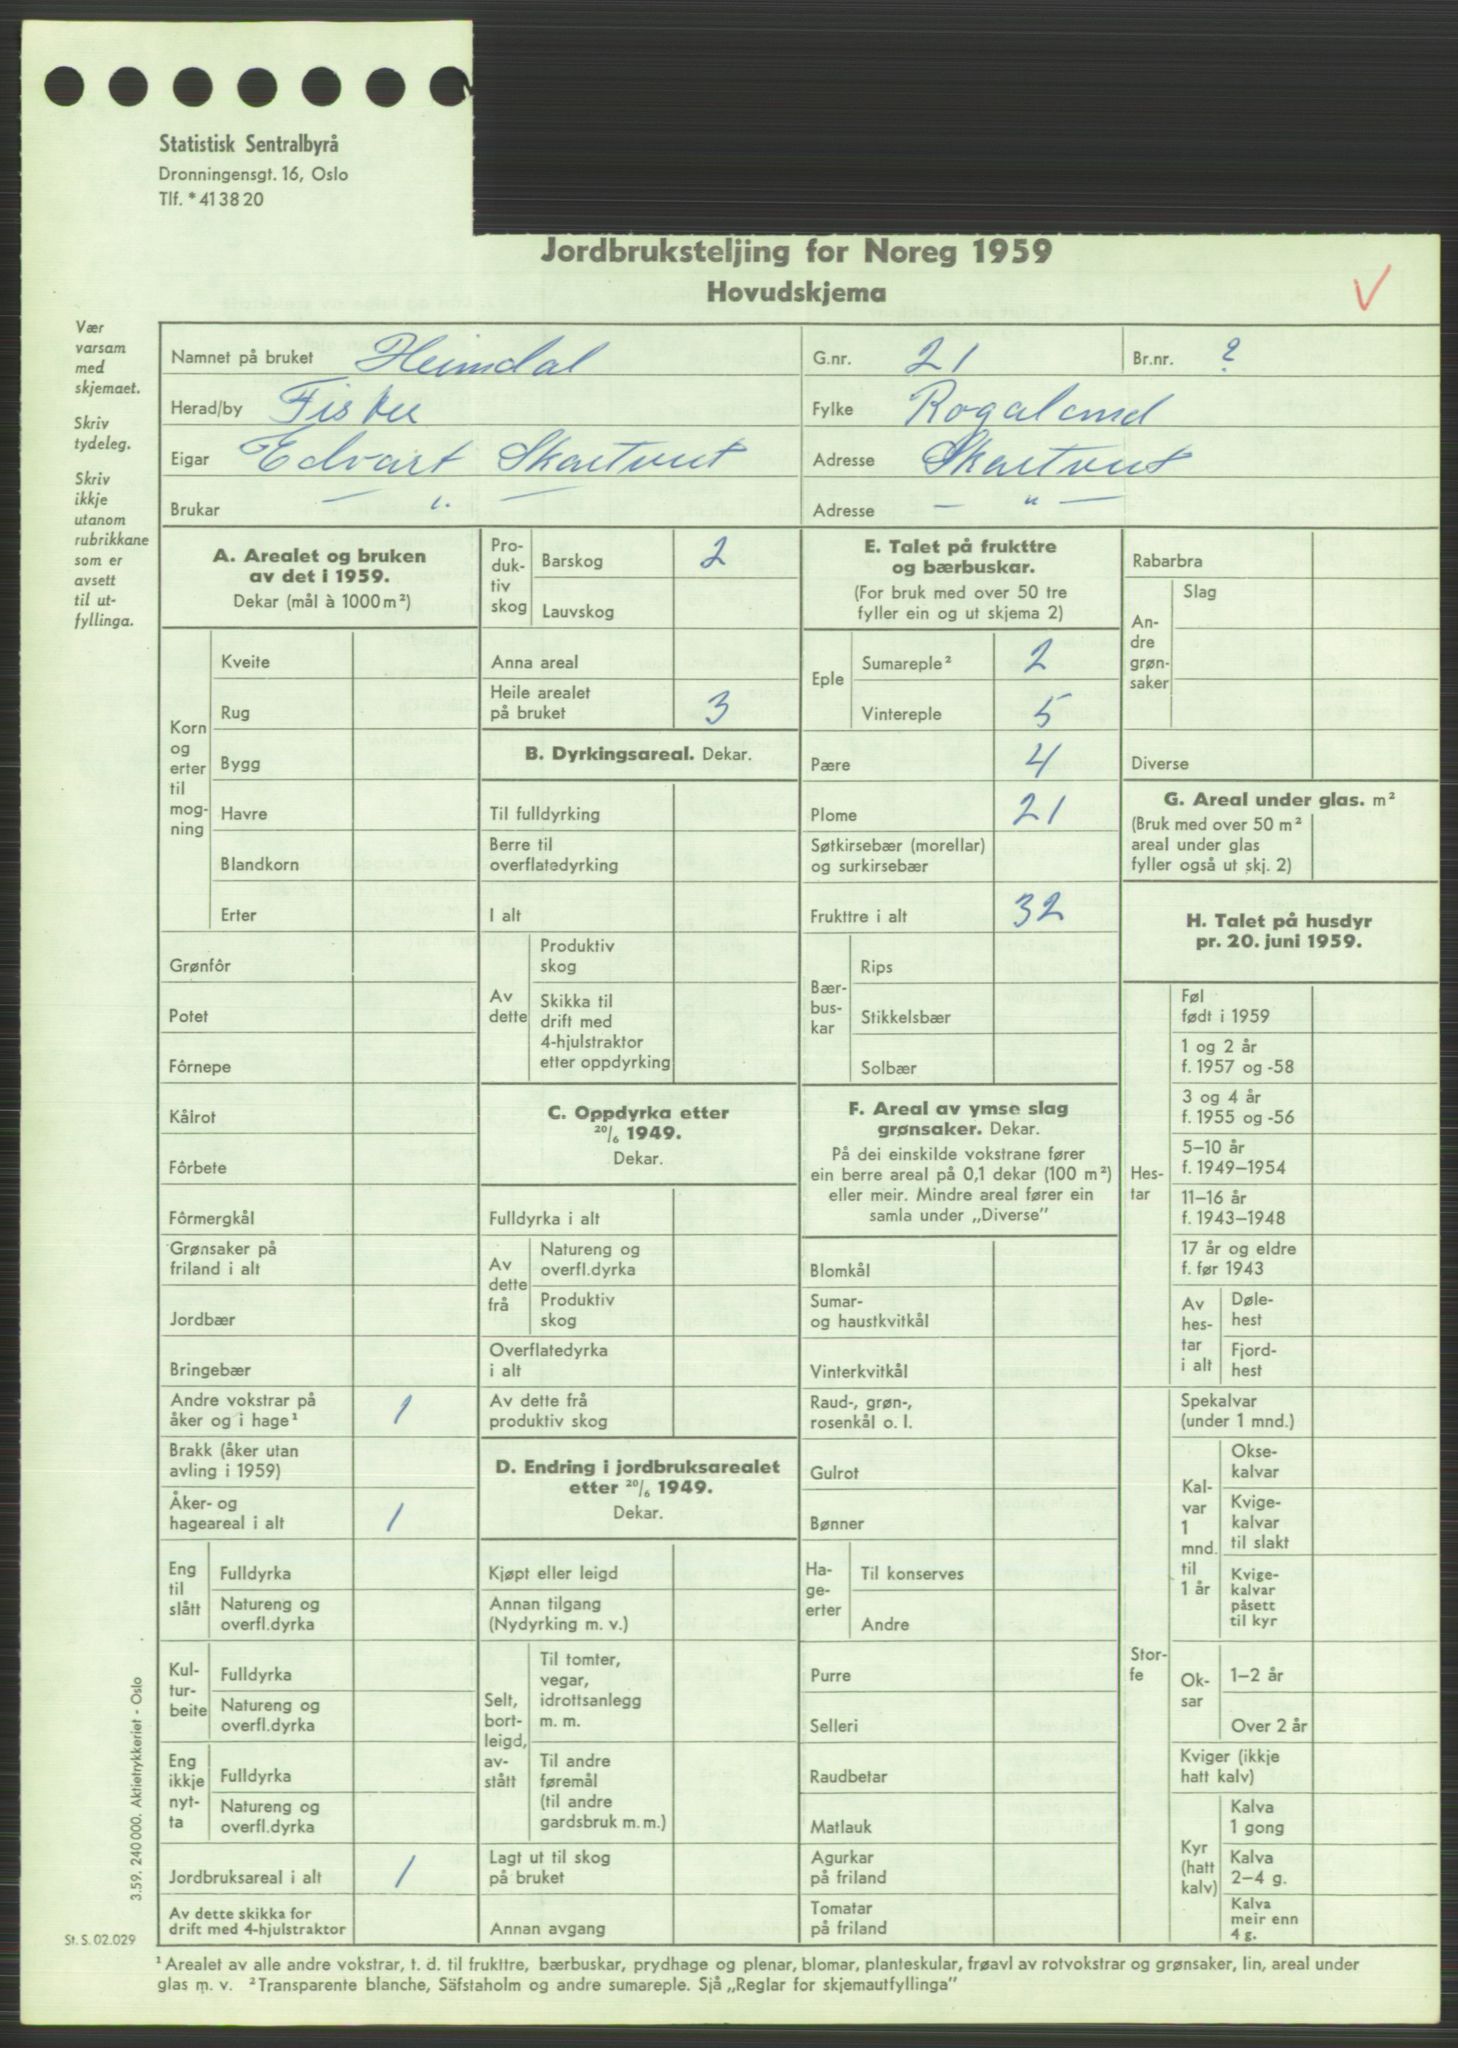 Statistisk Sentralbyrå
Dronningensgt. 16, Oslo
Tlf. *41 38 20
Jordbruksteljing for Noreg 1959
Hovudskjema
Vær
varsam
med
skjemaet.
Skriv
tydeleg.
Skriv
ikkje
utanom
rubrikkane
som er
avsett
til ut-
fyllinga.
Namnet på bruket Heimdal G.nr. 21 Br.nr. ?
Herad/by Fister Fylke Rogaland
Eigar Edvart Skartveit Adresse Skartveit
Brukar — " — Adresse — " —
A. Arealet og bruken
av det i 1959.
Dekar (mål à 1000 m²)
Korn
og
erter
til
mog-
ning
Kveite
Rug
Bygg
Havre
Blandkorn
Erter
Grønfôr
Potet
Fôrnepe
Kålrot
Fôrbete
Fôrmergkål
Grønsaker på
friland i alt
Jordbær
Bringebær
Andre vokstrar på
åker og i hage¹ 1
Brakk (åker utan
avling i 1959)
Åker- og
hageareal i alt 1
Eng
til
slått
Fulldyrka
Natureng og
overfl.dyrka
Kul-
tur-
beite
Fulldyrka
Natureng og
overfl.dyrka
Eng
ikkje
nyt-
ta
Fulldyrka
Natureng og
overfl.dyrka
Jordbruksareal i alt 1
Av dette skikka for
drift med 4-hjulstraktor
Pro-
duk-
tiv
skog
Barskog 2
Lauvskog
Anna areal
Heile arealet
på bruket 3
B. Dyrkingsareal. Dekar.
Til fulldyrking
Berre til
overflatedyrking
I alt
Av
dette
Produktiv
skog
Skikka til
drift med
4-hjulstraktor
etter oppdyrking
C. Oppdyrka etter
20/6 1949.
Dekar.
Fulldyrka i alt
Av
dette
frå
Natureng og
overfl.dyrka
Produktiv
skog
Overflatedyrka
i alt
Av dette frå
produktiv skog
D. Endring i jordbruksarealet
etter 20/6 1949.
Dekar.
Kjøpt eller leigd
Annan tilgang
(Nydyrking m. v.)
Selt,
bort-
leigd,
av-
stått
Til tomter,
vegar,
idrottsanlegg
m. m.
Til andre
føremål
(til andre
gardsbruk m. m.)
Lagt ut til skog
på bruket
Annan avgang
E. Talet på frukttre
og bærbuskar.
(For bruk med over 50 tre
fyller ein og ut skjema 2)
Eple
Sumareple² 2
Vintereple 5
Pære 4
Plome 21
Søtkirsebær (morellar)
og surkirsebær
Frukttre i alt 32
Bær-
bus-
kar
Rips
Stikkelsbær
Solbær
F. Areal av ymse slag
grønsaker. Dekar.
På dei einskilde vokstrane fører
ein berre areal på 0,1 dekar (100 m²)
eller meir. Mindre areal fører ein
samla under „Diverse"
Blomkål
Sumar-
og haustkvitkål
Vinterkvitkål
Raud-, grøn-,
rosenkål o. l.
Gulrot
Bønner
Ha-
ge-
erter
Til konserves
Andre
Purre
Selleri
Raudbetar
Matlauk
Agurkar
på friland
Tomatar
på friland
Rabarbra
An-
dre
grøn-
saker
Slag
Diverse
G. Areal under glas. m²
(Bruk med over 50 m²
areal under glas
fyller også ut skj. 2)
H. Talet på husdyr
pr. 20. juni 1959.
Hes-
tar
Føl
født i 1959
1 og 2 år
f. 1957 og -58
3 og 4 år
f. 1955 og -56
5–10 år
f. 1949–1954
11–16 år
f. 1943–1948
17 år og eldre
f. før 1943
Av
hes-
tar
i alt
Døle-
hest
Fjord-
hest
Stor-
fe
Spekalvar
(under 1 mnd.)
Kal-
var
1
mnd.
til
1 år
Okse-
kalvar
Kvige-
kalvar
til slakt
Kvige-
kalvar
påsett
til kyr
Ok-
sar
1–2 år
Over 2 år
Kviger (ikkje
hatt kalv)
Kyr
(hatt
kalv)
Kalva
1 gong
Kalva
2–4 g.
Kalva
meir enn
4 g.
3.59. 240 000. Aktietrykkeriet - Oslo
St. S. 02.029
¹ Arealet av alle andre vokstrar, t. d. til frukttre, bærbuskar, prydhage og plenar, blomar, planteskular, frøavl av rotvokstrar og grønsaker, lin, areal under
glas m. v. ² Transparente blanche, Säfstaholm og andre sumareple. Sjå „Reglar for skjemautfyllinga"